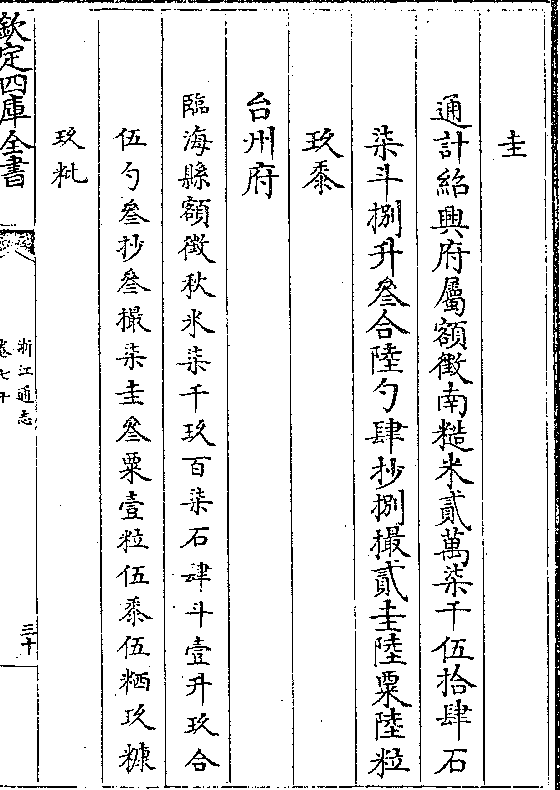 圭
通計紹興府屬額徵南糙米貳萬柒千伍拾肆石
柒斗捌升叄合陸勺肆抄捌撮貳圭陸粟陸粒
玖黍
台州府
臨海縣額徵秋米柒千玖百柒石肆斗壹升玖合
伍勺叄抄叄撮柒圭叄粟壹粒伍黍伍粞玖糠
玖粃
欽定四庫全書
浙江通志
卷七十
三十